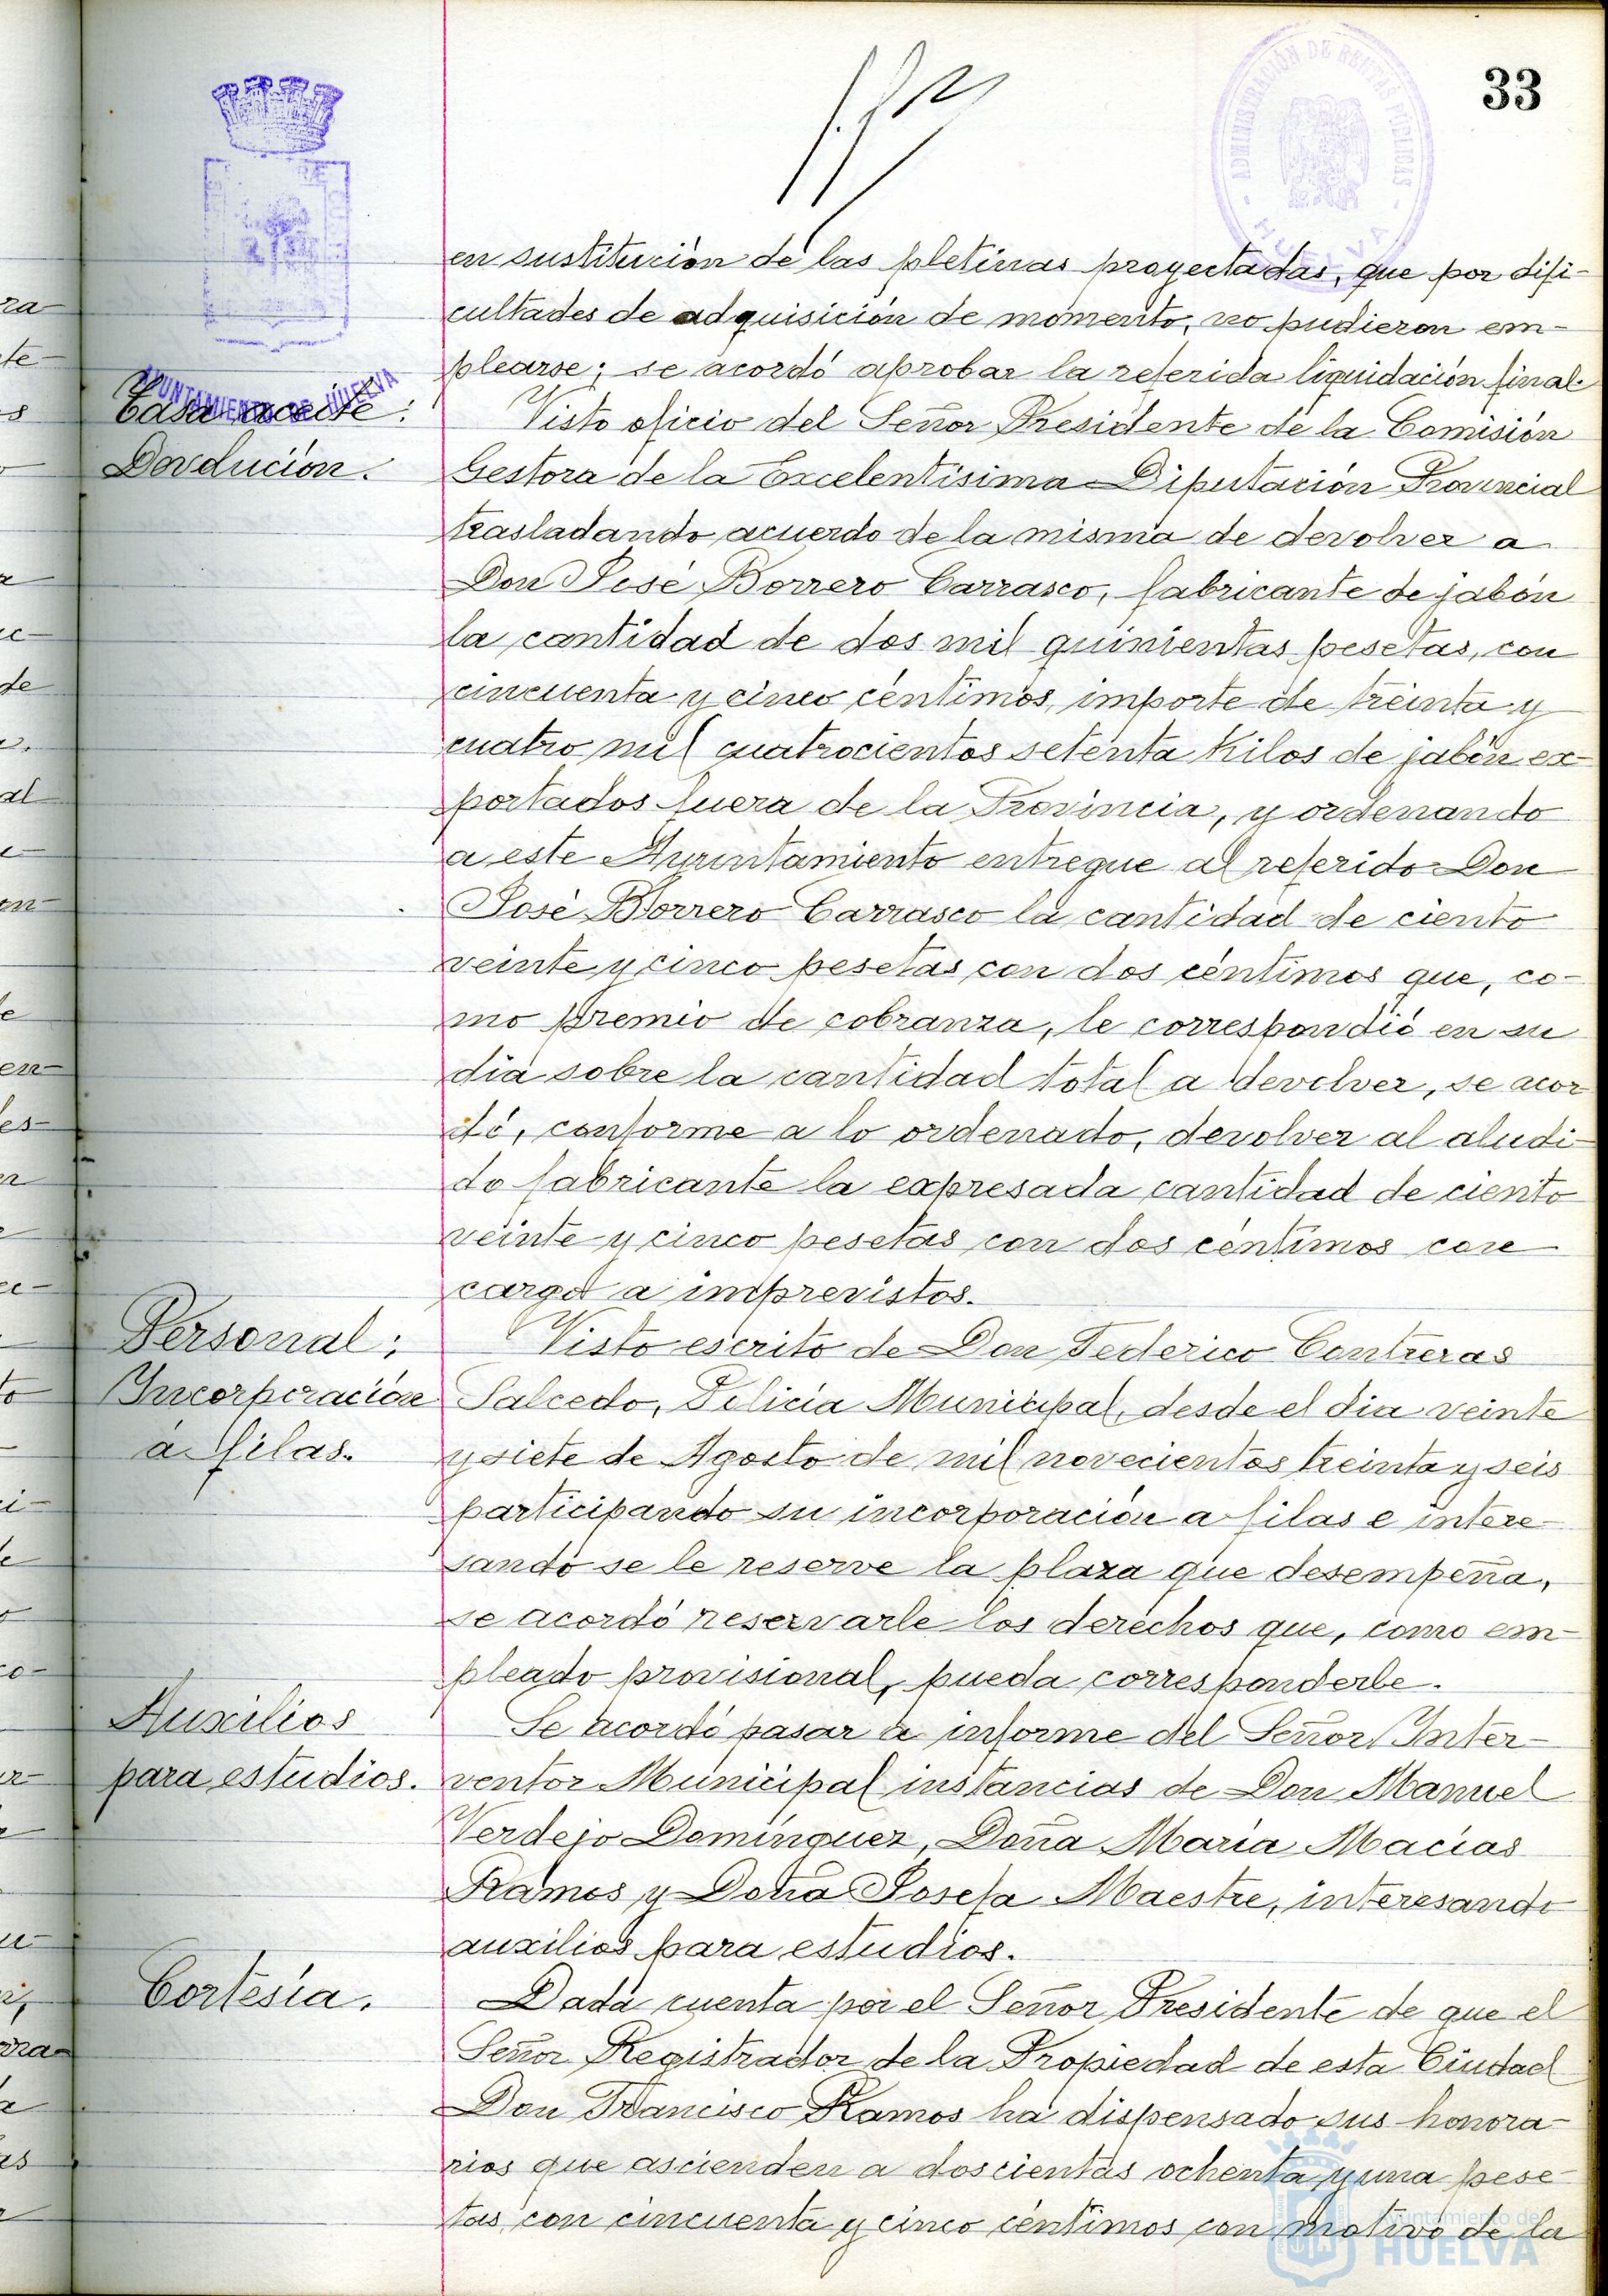 33
ADMINISTRACIÓN DE RENTAS PÚBLICAS
HUELVA
AYUNTAMIENTO DE HUELVA
en sustitución de las pletinas proyectadas, que por difi-
cultades de adquisición de momento, no pudieron em-
plearse; se acordó aprobar la referida liquidación final.
Tasa aceite:
Devolución.
Visto oficio del Señor Presidente de la Comisión
Gestora de la Excelentísima Diputación Provincial
trasladando acuerdo de la misma de devolver a
Don José Borrero Carrasco, fabricante de jabón
la cantidad de dos mil quinientas pesetas, con
cincuenta y cinco céntimos, importe de treinta y
cuatro mil cuatrocientos setenta Kilos de jabón ex-
portados fuera de la Provincia, y ordenando
a este Ayuntamiento entregue al referido Don
José Borrero Carrasco la cantidad de ciento
veinte y cinco pesetas con dos céntimos que, co-
mo premio de cobranza, le correspondió en su
día sobre la cantidad total a devolver, se acor
dó, conforme a lo ordenado, devolver al aludi-
do fabricante la expresada cantidad de ciento
veinte y cinco pesetas con dos céntimos con
cargo a imprevistos.
Personal;
Incorporación
a filas.
Visto escrito de Don Federico Contreras
Salcedo, Policía Municipal, desde el dia veinte
y siete de Agosto de mil novecientos treinta y seis
participando su incorporación a filas e intere-
sando se le reserve la plaza que desempeña,
se acordó reservarle los derechos que, como em-
pleado provisional, pueda corresponderle.
Auxilios
para estudios.
Se acordó pasar a informe del Señor Inter-
ventor Municipal instancias de Don Manuel
Verdejo Domínguez, Doña María Macías
Ramos y Doña Josefa Maestre, interesando
auxilios para estudios.
Cortesía.
Dada cuenta por el Señor Presidente de que el
Señor Registrador de la Propiedad de esta Ciudad
Don Francisco Ramos ha dispensado sus honora-
rios que ascienden a doscientas ochenta y una pese-
tas con cincuenta y cinco céntimos con motivo de la
Ayuntamiento de
HUELVA